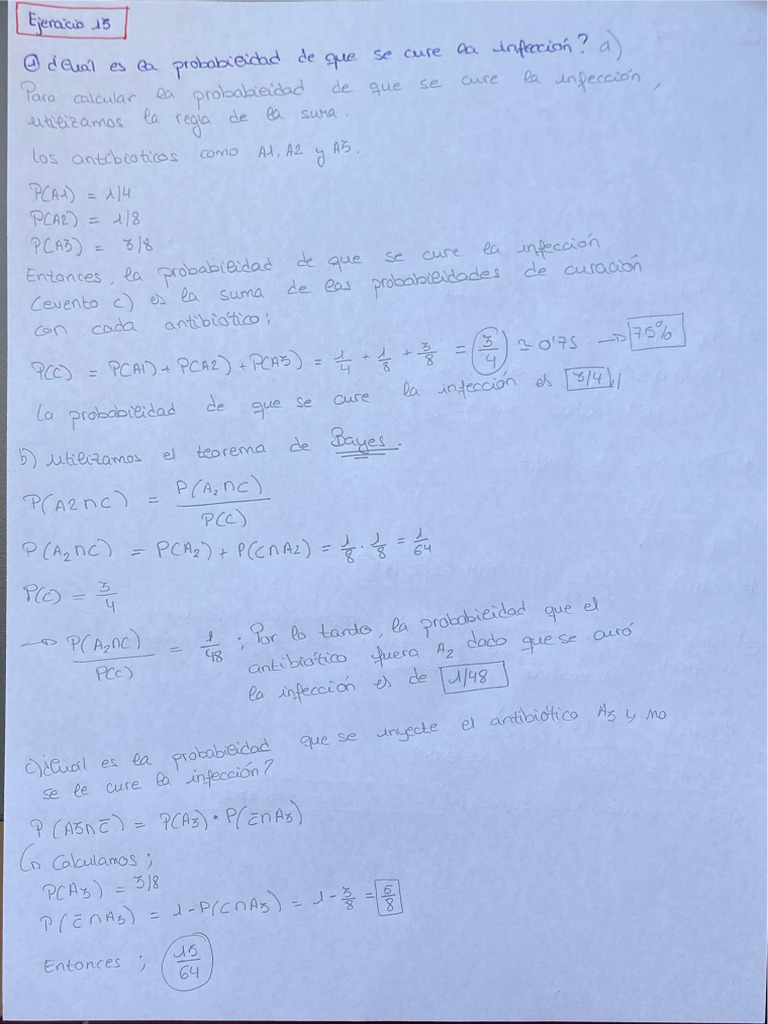 Ejercicio 15
a) ¿Cuál es la probabilidad de que se cure la infección? a)
Para calcular la probabilidad de que se cure la infección,
utilizamos la regla de la suma.
Los antibióticos como A1, A2 y A3.
P(A1) = 1/4
P(A2) = 1/8
P(A3) = 3/8
Entonces, la probabilidad de que se cure la infección
(evento c) es la suma de las probabilidades de curación
con cada antibiótico;
P(C) = P(A1) + P(A2) + P(A3) = 1/4 + 1/8 + 3/8 = 3/4 ≃ 0'75 → 75%
La probabilidad de que se cure la infección es 3/4 //
b) Utilizamos el teorema de Bayes.
P(A2∩C) = P(A₂∩C) / P(C)
P(A₂∩C) = P(A₂) + P(C∩A2) = 1/8 · 1/8 = 1/64
P(C) = 3/4
→ P(A₂∩C) / P(C) = 1/48 ; Por lo tanto, la probabilidad que el
antibiótico fuera A₂ dado que se curó
la infección es de 1/48
c) ¿Cuál es la probabilidad que se inyecte el antibiótico A₃ y no
se le cure la infección?
P(A3∩C̄) = P(A₃) · P(C̄∩A₃)
↳ Calculamos;
P(A₃) = 3/8
P(C̄∩A₃) = 1 - P(C∩A₃) = 1 - 3/8 = 5/8
Entonces ; 15/64